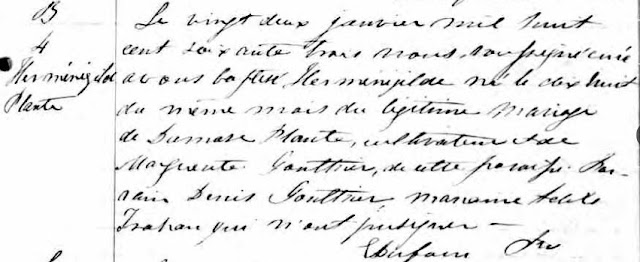 B
4
Herménégilde
Plante
Le vingt deux janvier mil huit
cent soixante trois nous soussigné curé
avons baptisé Hermenigilde né le dix huit
du même mois du légitime mariage
de Damase Plante, cultivateur et de
Marguerite Gouthier, de cette paroisse Par-
rain Denis Gouthier, marraine
Trahan qui n'ont pu signer —
Ptre